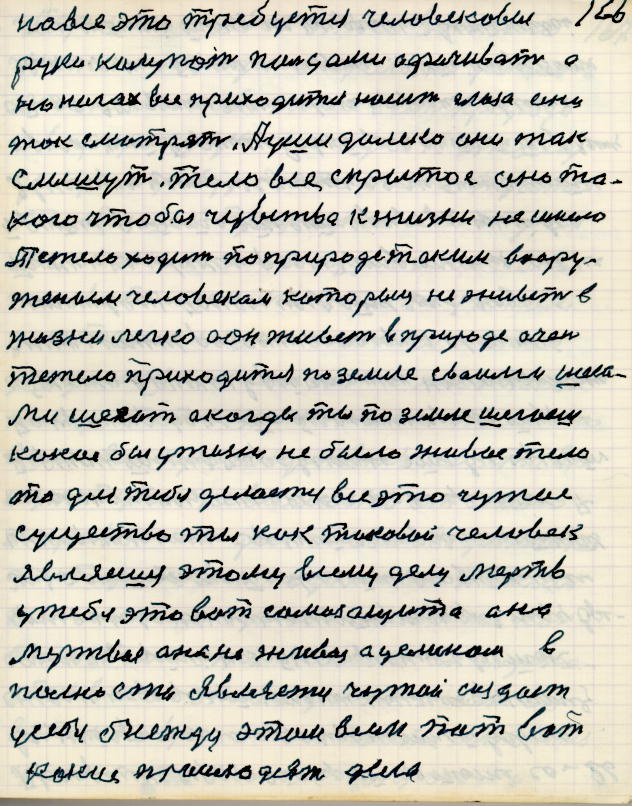 на все это требуется человековы 166
руки капутот пальцами ворачивать а
на ногах все приходится носит глаза они
так смотрят. А уши далеко они так
слишут. тело все скрытое оно та-
кого чтобы чувства к жизни не имело
Тежело ходит по природе таким воору-
женым человекам которыи не живет в
жизни легко а он живет в природе очен
тежело приходится по земле своими шага-
ми шегат а когда ты по земле шегаеш
какое бы у жизни не было живое тело
то для тебя делается все это чужое
существо ты как таковой человек
являешся этому всему делу мертв
у тебя это вот самозащита она
мертвая она не живая а целиком в
полности является чужой создает
у себя между этом всем вот вот
какие происходят дела